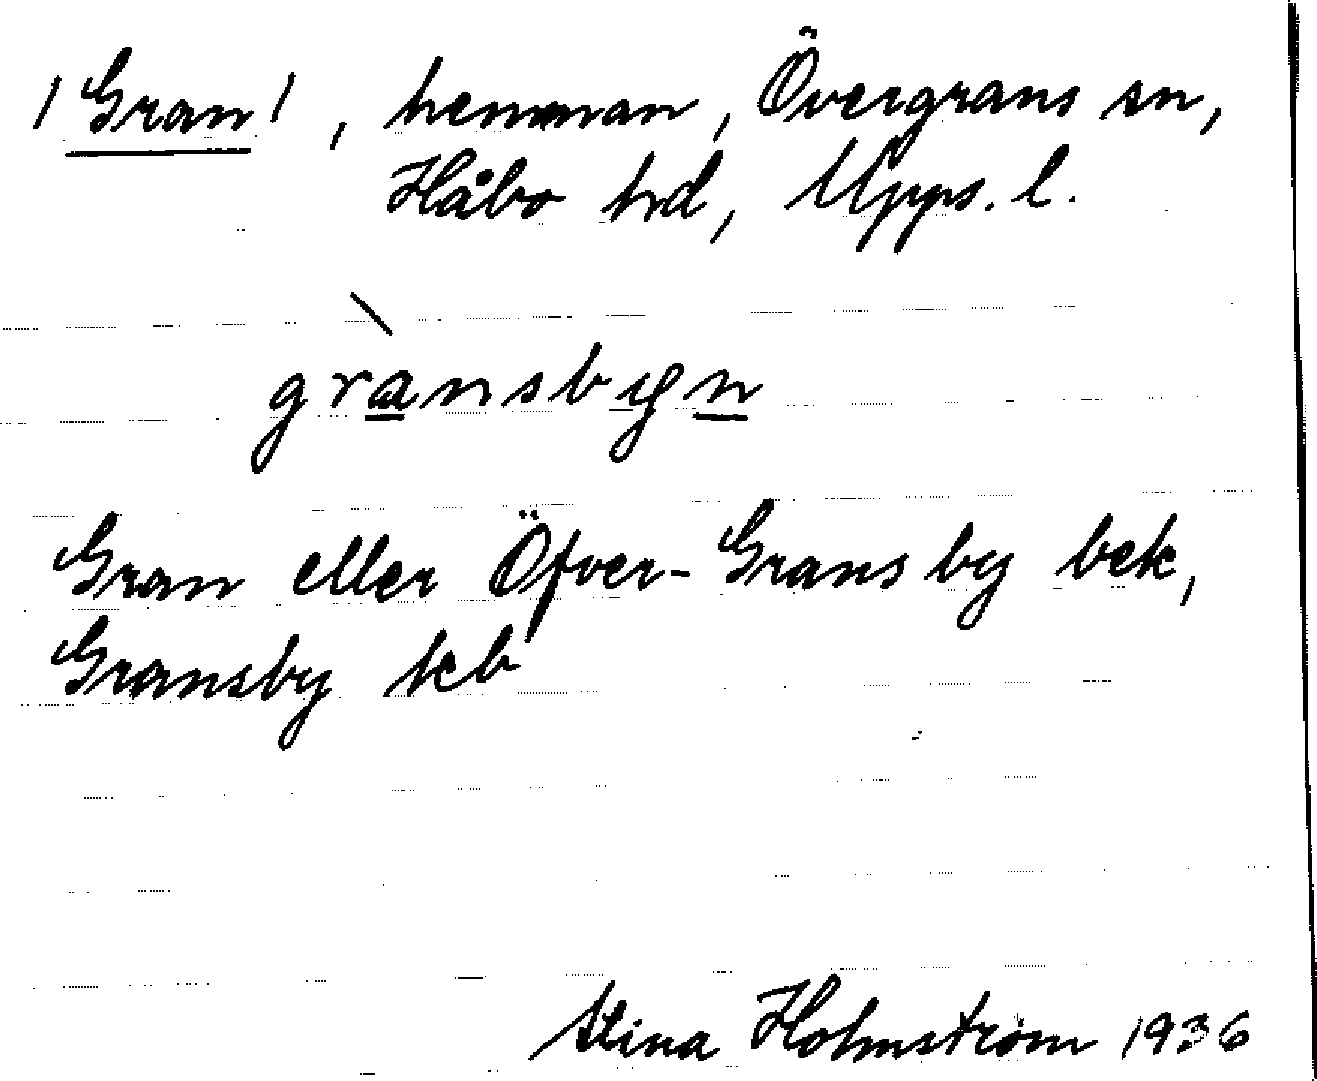 /Gran/, hemman, Övergrans sn,
Håbo hd, Upps. l.
grànsbyn
Gran eller Öfver-Grans by bek,
Gransby kb
Stina Holmström 1936